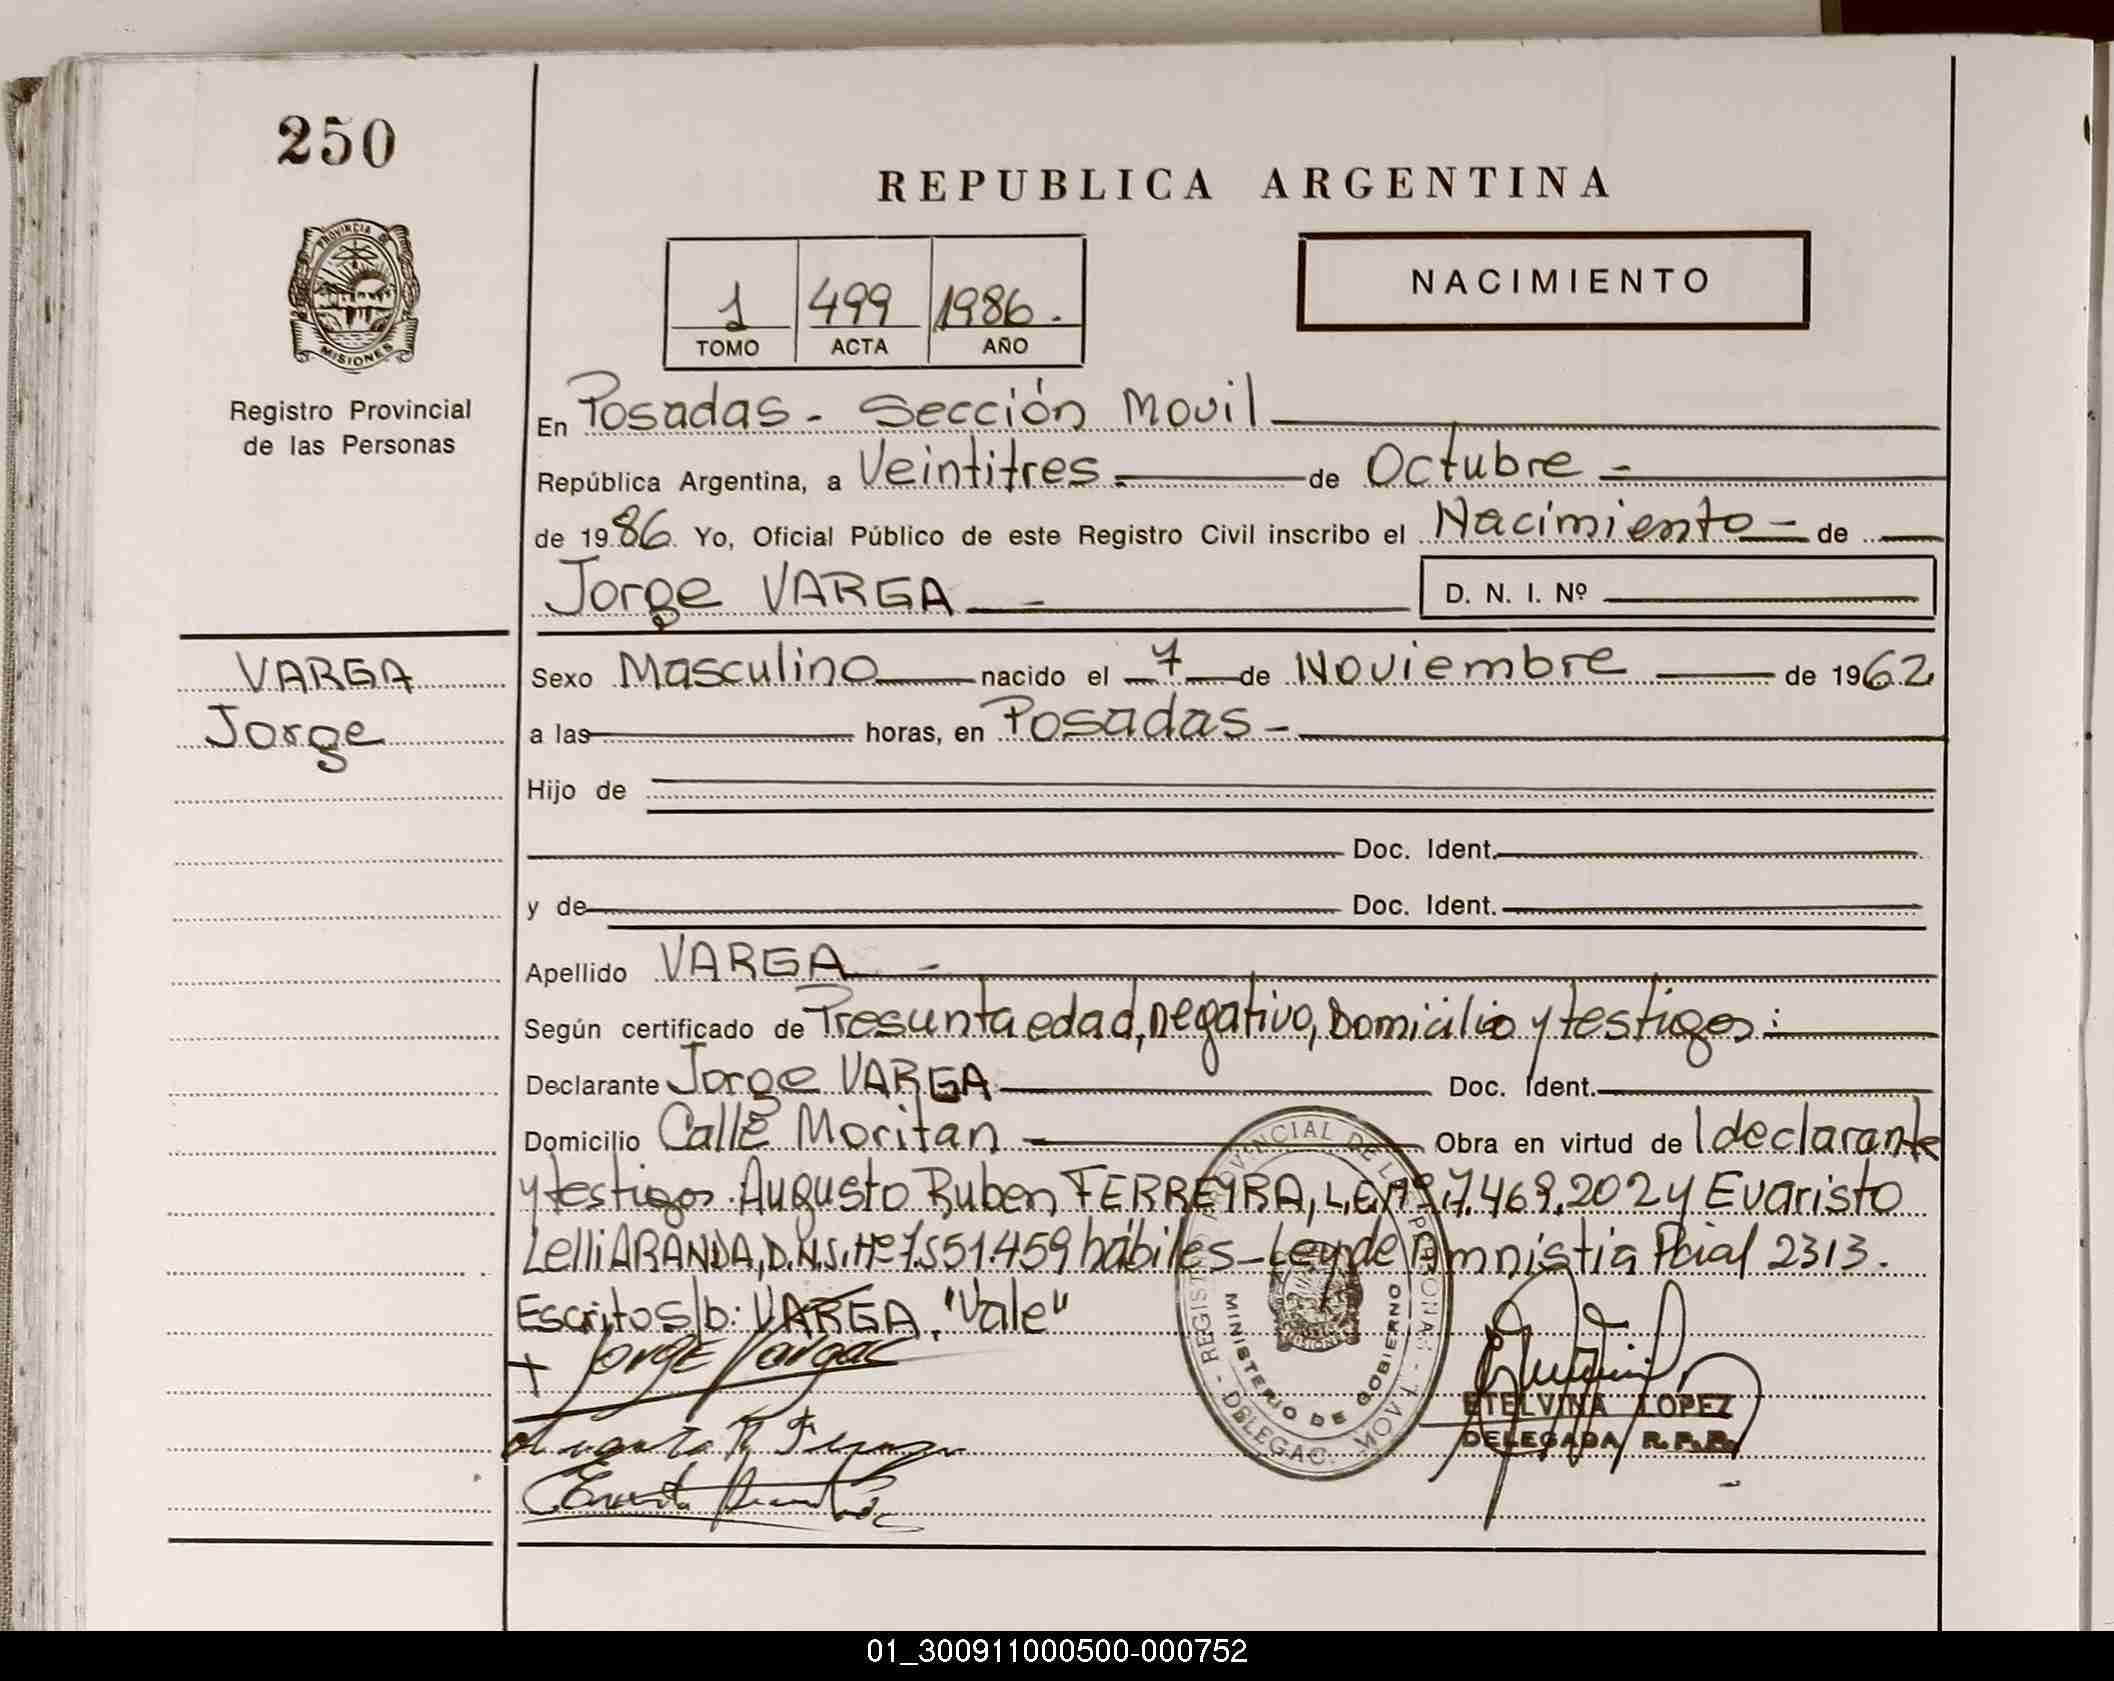 250
REPUBLICA ARGENTINA
PROVINCIA DE
MISIONES
1 499 1986.
TOMO ACTA AÑO
NACIMIENTO
Registro Provincial
de las Personas
En Posadas - Sección Movil
República Argentina, a Veintitres - de Octubre -
de 1986. Yo, Oficial Público de este Registro Civil inscribo el Nacimiento - de
Jorge VARGA - D. N. I. Nº
VARGA
Jorge
Sexo Masculino nacido el 7 de Noviembre de 1962
a las horas, en Posadas -
Hijo de
Doc. Ident.
y de Doc. Ident.
Apellido VARGA -
Según certificado de Presunta edad, negativo, Domicilio y testigos:
Declarante Jorge VARGA Doc. Ident.
Domicilio Calle Moritan - Obra en virtud de l declarante
y testigos. Augusto Ruben FERREYRA, L.E.Nº 7.469.202 y Evaristo
Lelli ARANDA, D.N.I. Nº 7.551.459 hábiles - Ley de Amnistia Pcial 2313.
Escrito s/b: VARGA. "Vale"
+ Jorge Vargas
REGISTRO PROVINCIAL DE LAS PERSONAS - DELEGAC. MOVIL
MINISTERIO DE GOBIERNO
ETELVINA LOPEZ
DELEGADA R.P.P.
01_300911000500-000752